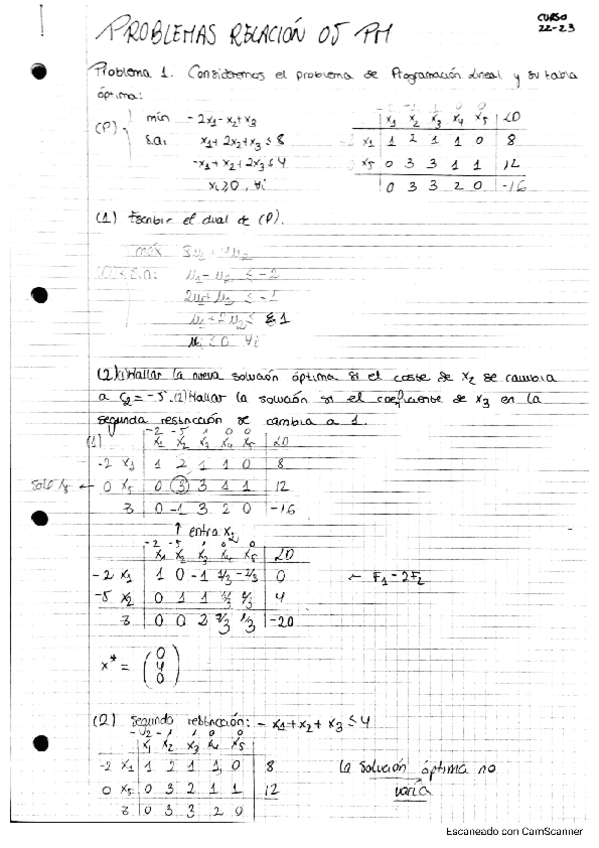 PROBLEMAS RELACIÓN 05 PM
CURSO 22-23
Problema 1. Consideremos el problema de Programación Lineal y su tabla
óptima:
(P) min - 2x1 - x2 + x3
s.a: x1 + 2x2 + x3 ≤ 8
-x1 + x2 + 2x3 ≤ 4
xi ≥ 0, ∀i
-2 -1 1 0 0
x1 x2 x3 x4 x5 LD
x1 1 2 1 1 0 8
x5 0 3 3 1 1 12
0 3 3 2 0 -16
(1) Escribir el dual de (P).
máx
s.a: μ1 - μ2 ≤ -2
2μ1 + μ2 ≤ -1
μ1 + 2μ2 ≤ 1
μi ≤ 0 ∀i
(2) (1) Hallar la nueva solución óptima si el coste de x2 se cambia
a c2 = -5. (2) Hallar la solución si el coeficiente de x3 en la
segunda restricción se cambia a 1.
(1)
-2 -5 1 0 0
x1 x2 x3 x4 x5 LD
-2 x1 1 2 1 1 0 8
sale x5 ← 0 x5 0 3 3 1 1 12
z 0 -1 3 2 0 -16
↑ entra x2
-2 -5 1 0 0
x1 x2 x3 x4 x5 LD
-2 x1 1 0 -1 1/3 -2/3 0 ← F1 - 2F2
-5 x2 0 1 1 1/3 1/3 4
z 0 0 -20
x* = (0 4 0)
(2) Segunda restricción: -x1 + x2 + x3 ≤ 4
-2 -1 1 0 0
x1 x2 x3 x4 x5
-2 x1 1 2 1 1 0 8
0 x5 0 3 2 1 1 12
z 0 3 3 2 0
La solución óptima no
varía
Escaneado con CamScanner